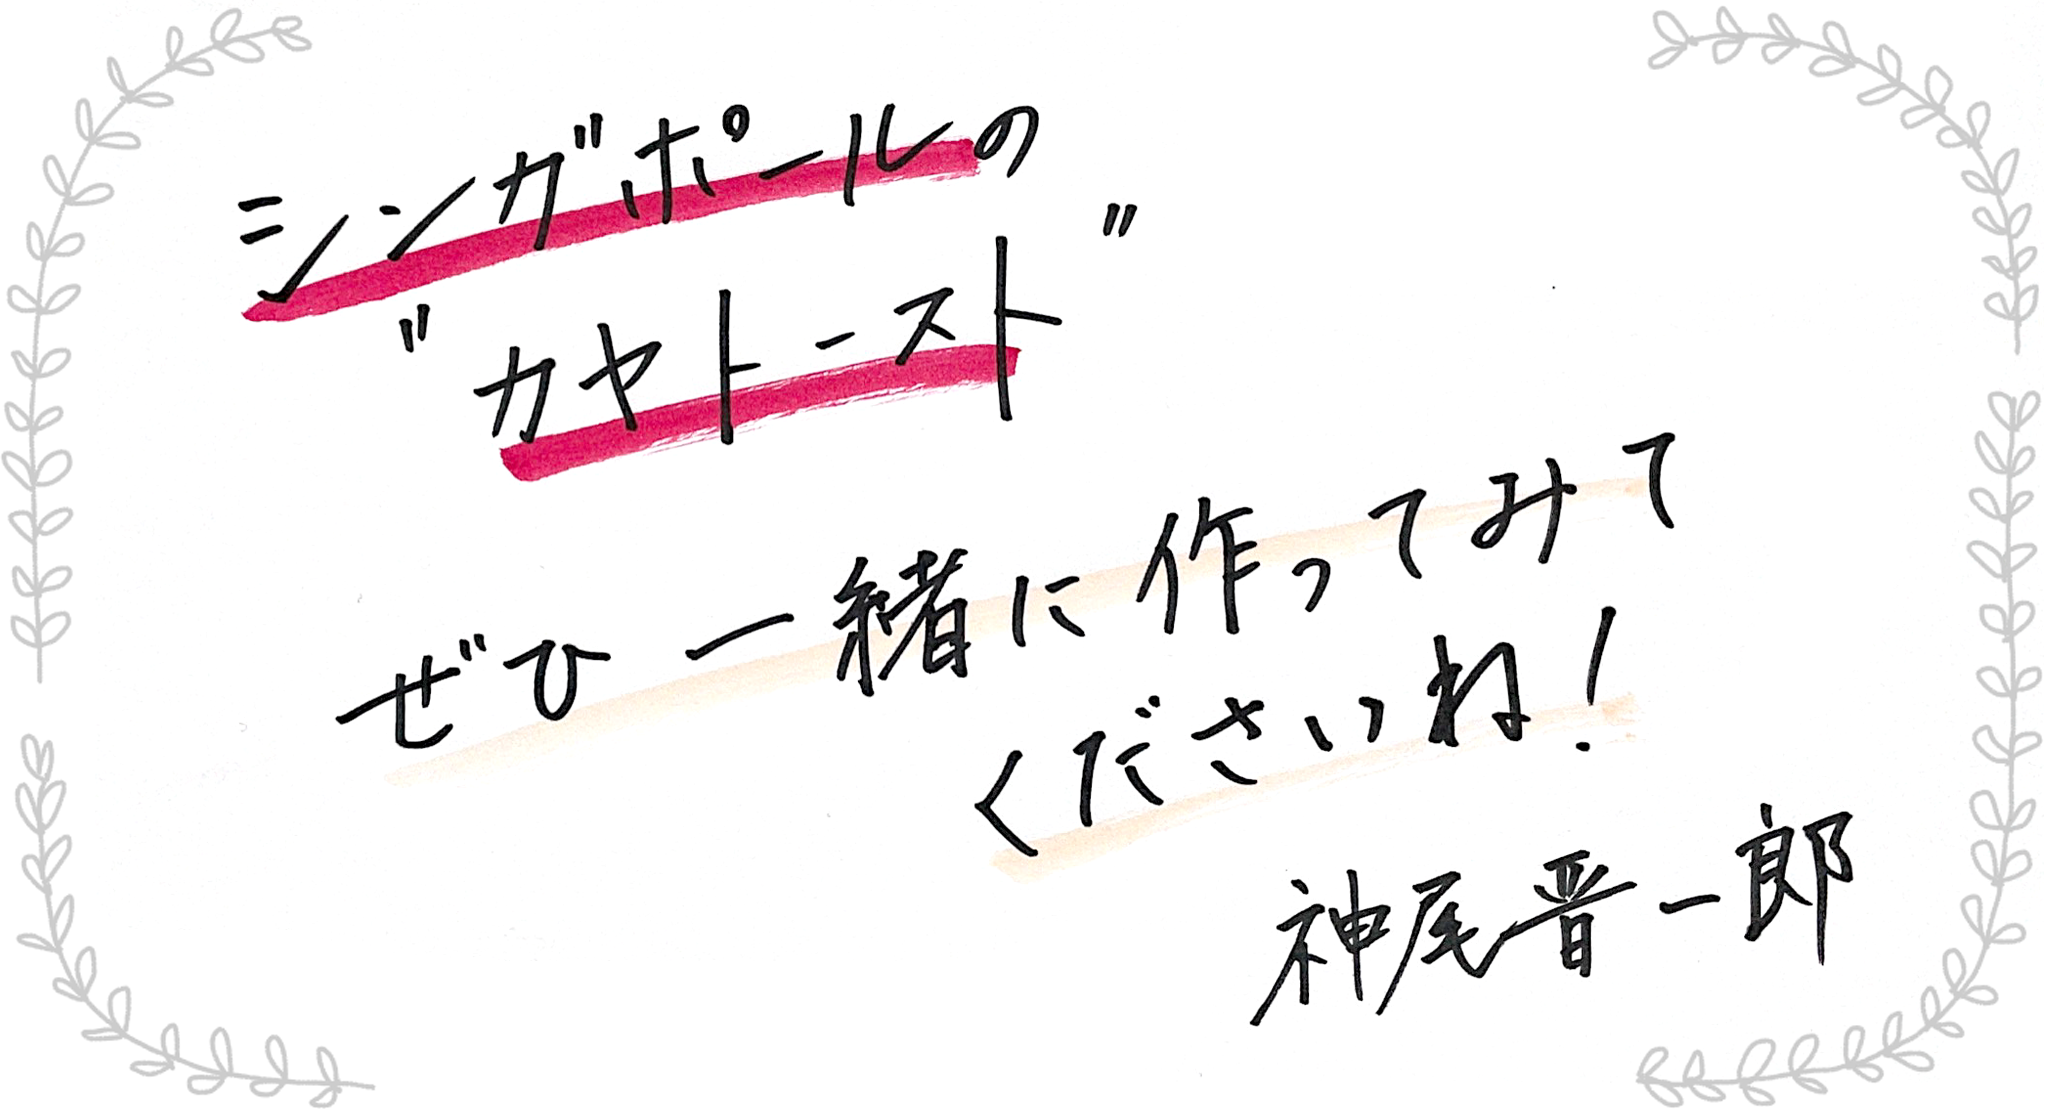 シンガポールの
"カヤトースト"
ぜひ一緒に作ってみて
くださいね!
神尾晋一郎